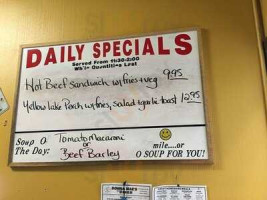 DAILY SPECIALS
Served From 11:30-2:00
While Quantities Last
Hot Beef Sandwich w/fries + veg 9.95
Yellow lake Perch w/fries, salad + garlic toast 12.95
Soup O Tomato Macaroni
The Day: or
Beef Barley
mile....or
O SOUP FOR YOU!